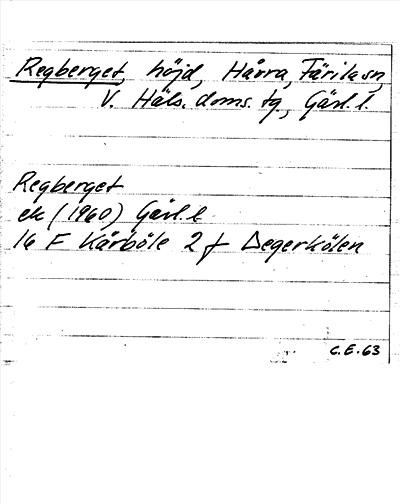 Regberget, höjd, Hårra, Färila sn,
V. Häls. doms. tg, Gävl. l.
Regberget
ek (1960) Gävl. l.
16 F Kårböle 2 f Degerkölen
C.E.-63